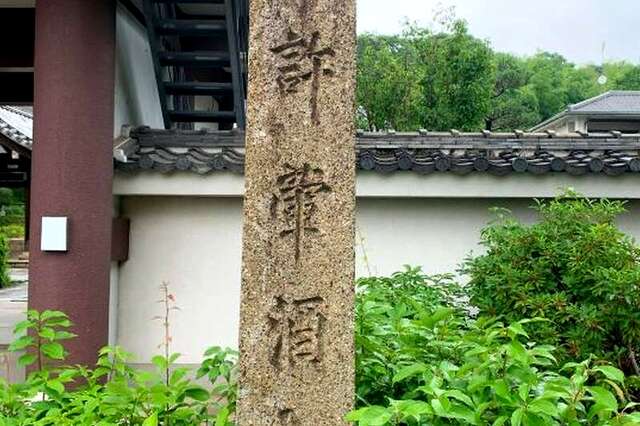 許葷酒